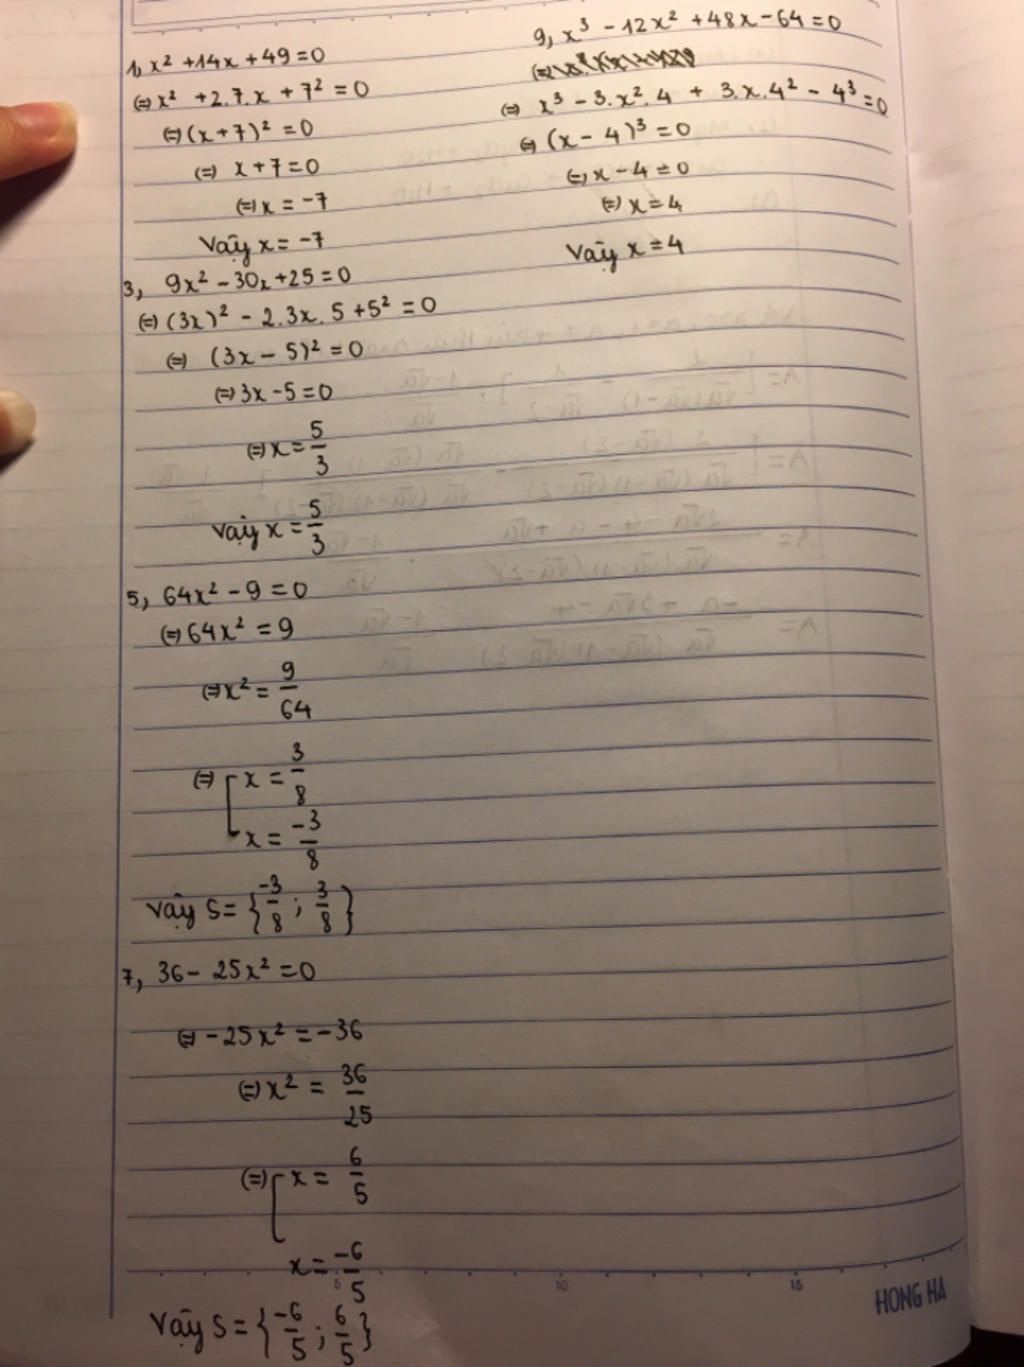 1, x² + 14x + 49 = 0
(=) x² + 2.7.x + 7² = 0
(=) (x + 7)² = 0
(=) x + 7 = 0
(=) x = -7
Vậy x = -7
3, 9x² - 30x + 25 = 0
(=) (3x)² - 2.3x.5 + 5² = 0
(=) (3x - 5)² = 0
(=) 3x - 5 = 0
(=) x = 5/3
Vậy x = 5/3
5, 64x² - 9 = 0
(=) 64x² = 9
(=) x² = 9/64
(=) [ x = 3/8
x = -3/8
Vậy S = { -3/8 ; 3/8 }
7, 36 - 25x² = 0
(=) -25x² = -36
(=) x² = 36/25
(=) [ x = 6/5
x = -6/5
Vậy S = { -6/5 ; 6/5 }
9, x³ - 12x² + 48x - 64 = 0
(=) x³ - 3.x².4 + 3.x.4² - 4³ = 0
(=) (x - 4)³ = 0
(=) x - 4 = 0
(=) x = 4
Vậy x = 4
5 10 15
HONG HA